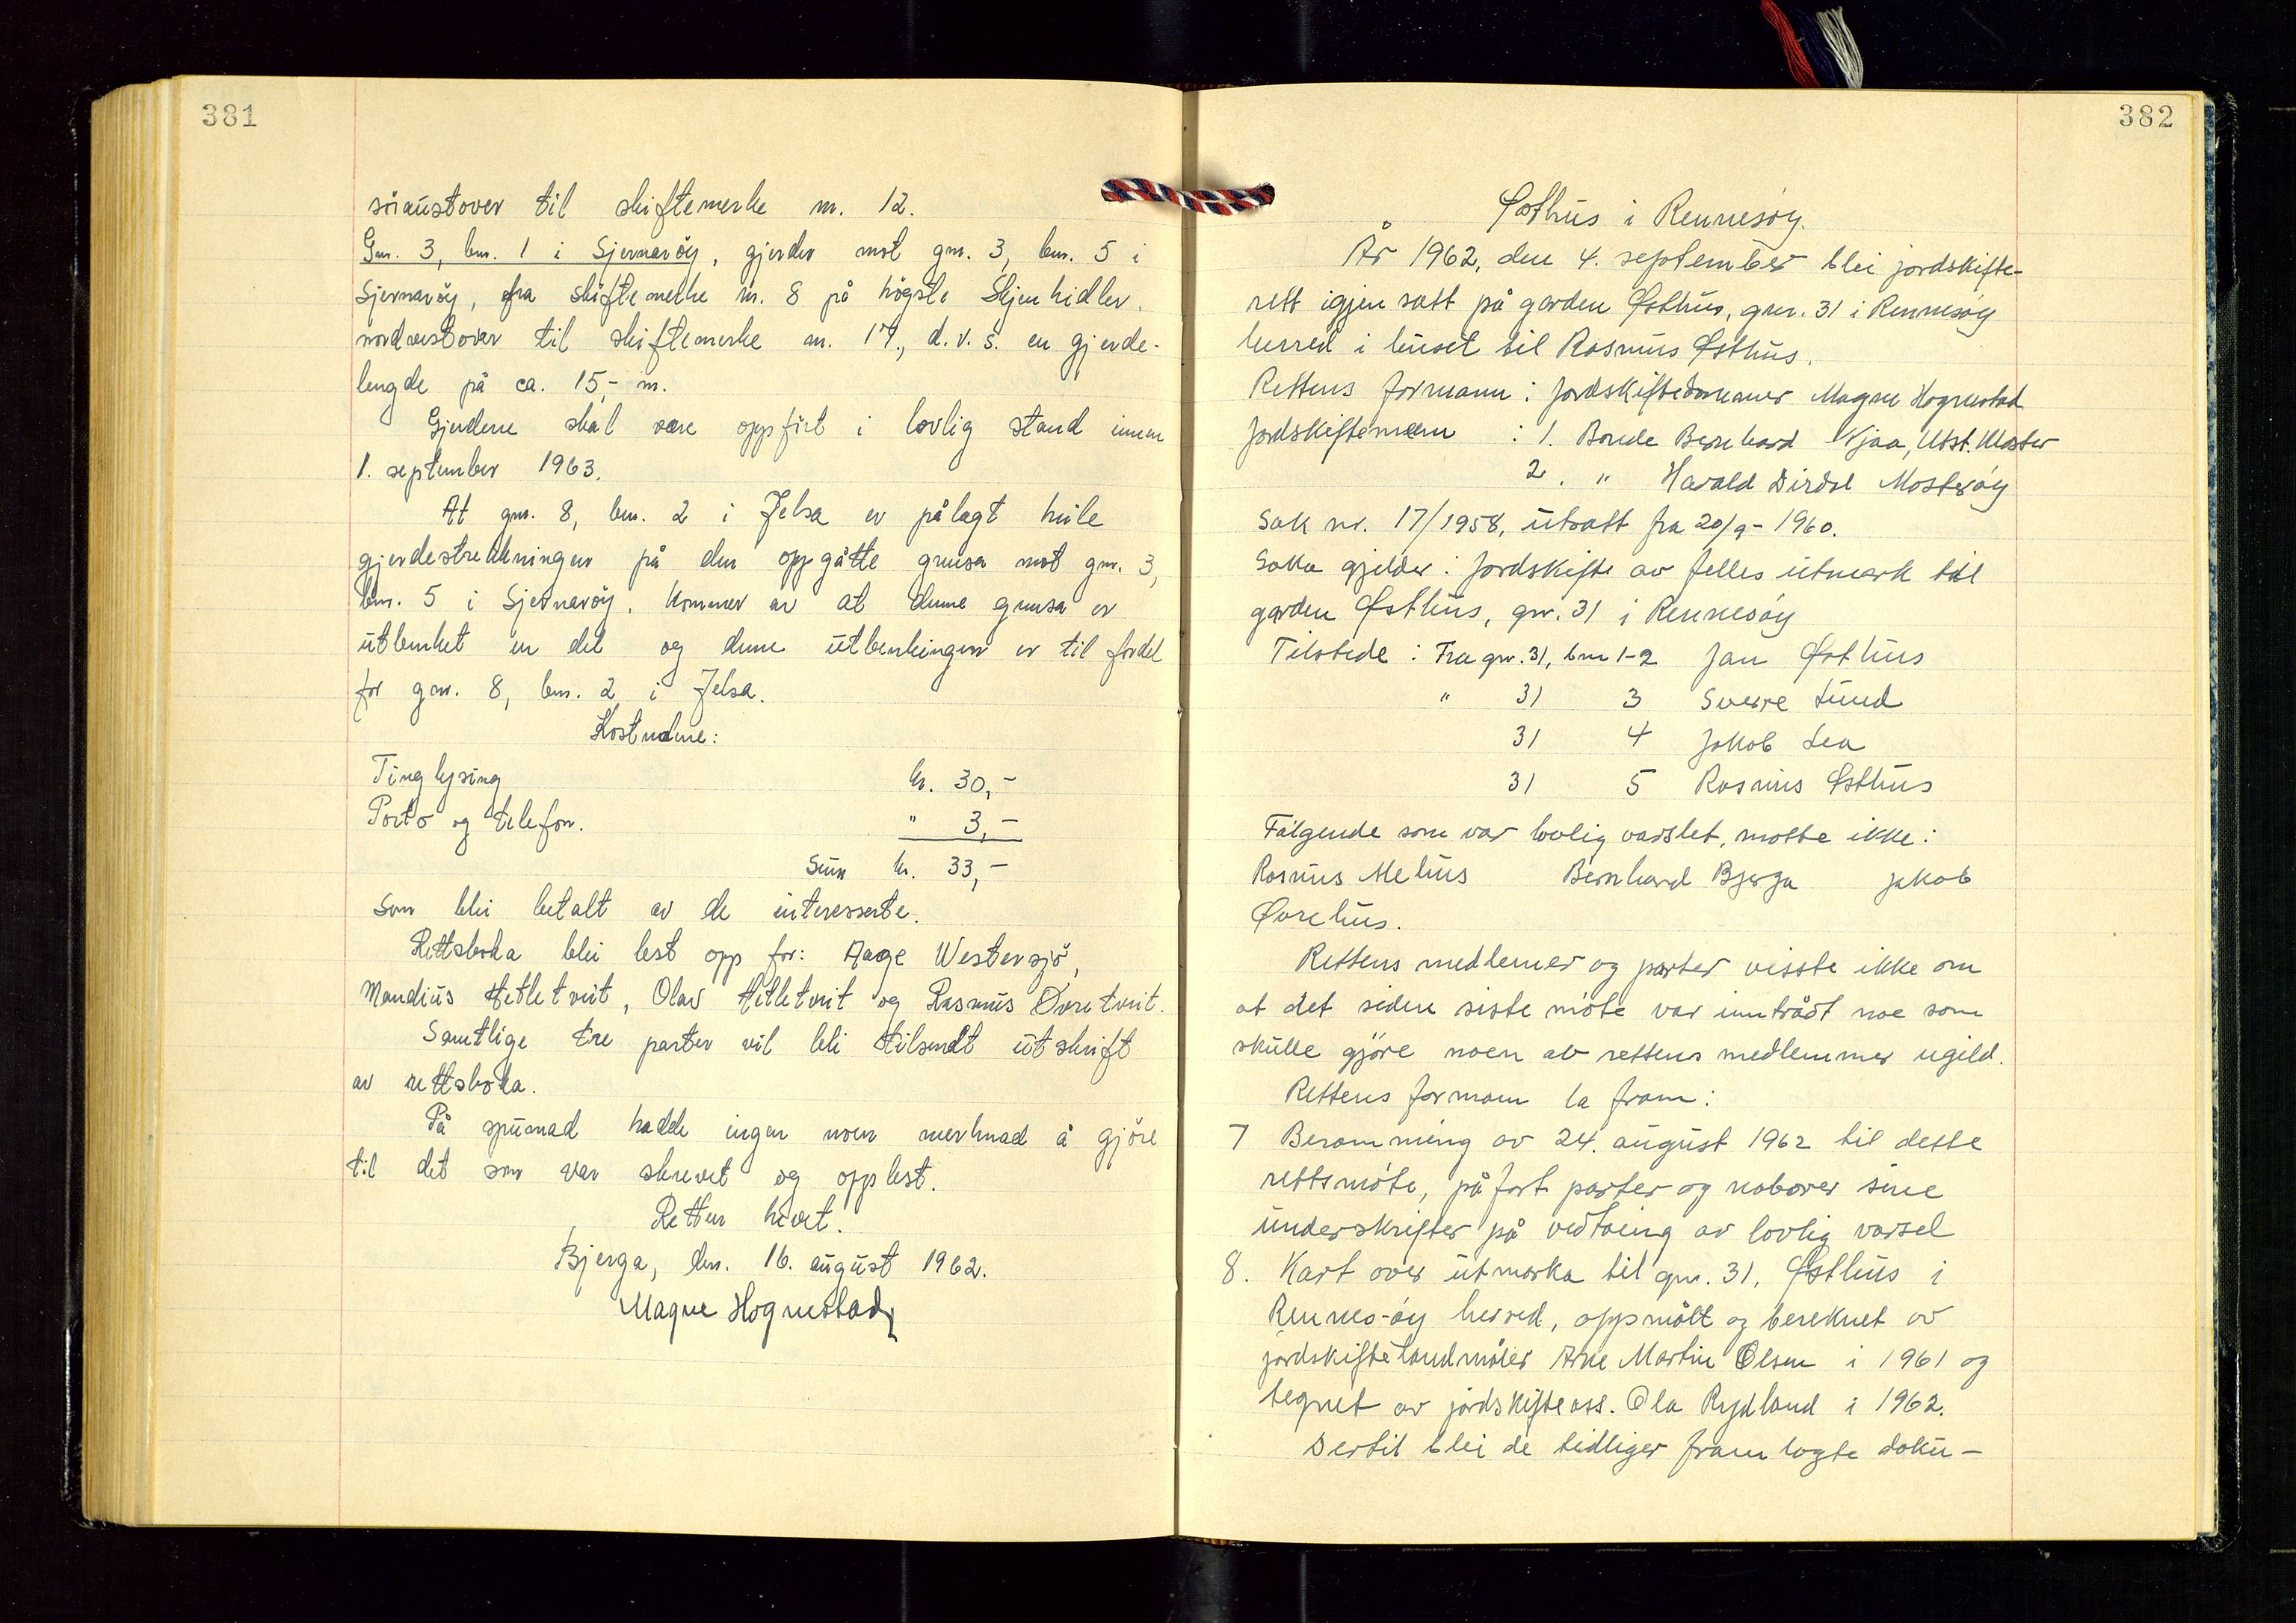 381
söraustover til skiftemerke nr. 12.
Gnr. 3, bnr. 1 i Sjernaröy, gjerder mot gnr. 3, bnr. 5 i
Sjernaröy, fra skiftemerke nr. 8 på högste Skjenhidler.
nordvestover til skiftemerke nr. 17., d.v.s. en gjerde-
lengde på ca. 15,- m.
Gjerdene skal være oppfört i lovlig stand innen
1. september 1963.
At gnr. 8, bnr. 2 i Jelsa er pålagt heile
gjerdestrekningen på den oppgåtte grensa mot gnr. 3,
bnr. 5 i Sjernaröy, kommer av at denne grensa er
utbenket en del og denne utbenkingen er til fordel
for gnr. 8, bnr. 2 i Jelsa.
Kostnadene:
Tinglysing kr. 30,-
Porto og telefon. " 3,-
Sum kr. 33,-
Som blei betalt av de interesserte.
Rettsboka blei lest opp for: Aage Westersjö,
Mandius Hetletveit, Olav Hetletveit og Rasmus Øvretveit.
Samtlige tre parter vil bli tilsendt utskrift
av rettsboka.
På spurnad hadde ingen noen merknad å gjöre
til det som var skrevet og opplest.
Retten hevet.
Bjerga, den. 16. august 1962.
Magne Hognestad
382
Østhus i Rennesøy.
År 1962, den 4. september blei jordskifte-
rett igjen satt på garden Østhus, gnr. 31 i Rennesøy
herred i huset til Rasmus Østhus.
Rettens formann: Jordskiftedommer Magne Hognestad
Jordskiftemenn : 1. Bonde Bernhard Kjaa, Utst. Kloster
2. " Harald Dirdal Mosterøy
Sak nr. 17/1958, utsatt fra 20/9-1960.
Saka gjelder: Jordskifte av felles utmark til
garden Østhus, gnr. 31 i Rennesøy
Tilstede: Fra gnr. 31, bnr 1-2 Jan Østhus
" 31 3 Sverre Lund
31 4 Jakob Lea
31 5 Rasmus Østhus
Følgende som var lovlig varslet, møtte ikke:
Rasmus Mehus Bernhard Bjerga Jakob
Øvrehus.
Rettens medlemer og parter visste ikke om
at det siden siste møte var inntrådt noe som
skulle gjöre noen av rettens medlemmer ugild.
Rettens formann la fram:
7 Beramming av 24. august 1962 til dette
rettsmøte, påført parter og naboer sine
underskrifter på vedtaing av lovlig varsel
8. Kart over utmarka til gnr. 31, Østhus i
Rennes-øy herred, oppmålt og bereknet av
jordskiftelandmåler Arne Martin Olsen i 1961 og
tegnet av jordskifteass. Ola Rydland i 1962.
Dertil blei de tidliger framlagte doku-